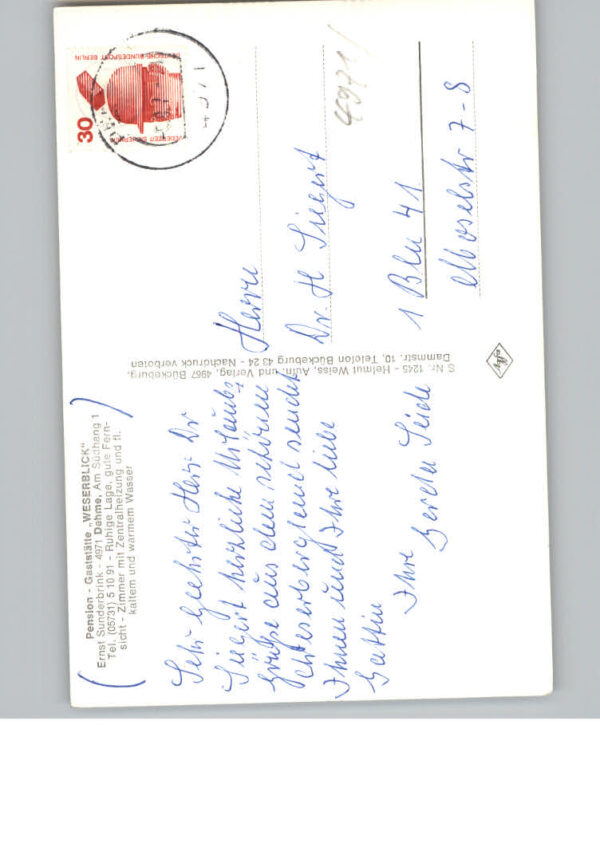 Pension - Gaststätte „WESERBLICK"
Ernst Sunderbrink - 4971 Dehme, Am Südhang 1
Tel. (05731) 5 10 91 - Ruhige Lage, gute Fern-
sicht - Zimmer mit Zentralheizung und fl.
kaltem und warmem Wasser
Sehr geehrter Herr Dr
Siegert herzliche Urlaubs
grüße aus dem schönen
Weserbergland sendet
Ihnen und Ihre liebe
Gattin
Ihre
Gerda Seide
S Nr. 1245 - Helmut Weiss, Aufn. und Verlag, 4967 Bückeburg,
Dammstr. 10, Telefon Bückeburg 43 24 - Nachdruck verboten
30
DEUTSCHE BUNDESPOST BERLIN
JEDERZEIT SICHERHEIT
4971
4971
Herrn
Dr H Siegert
1 Bln 41
Moselstr 7-8